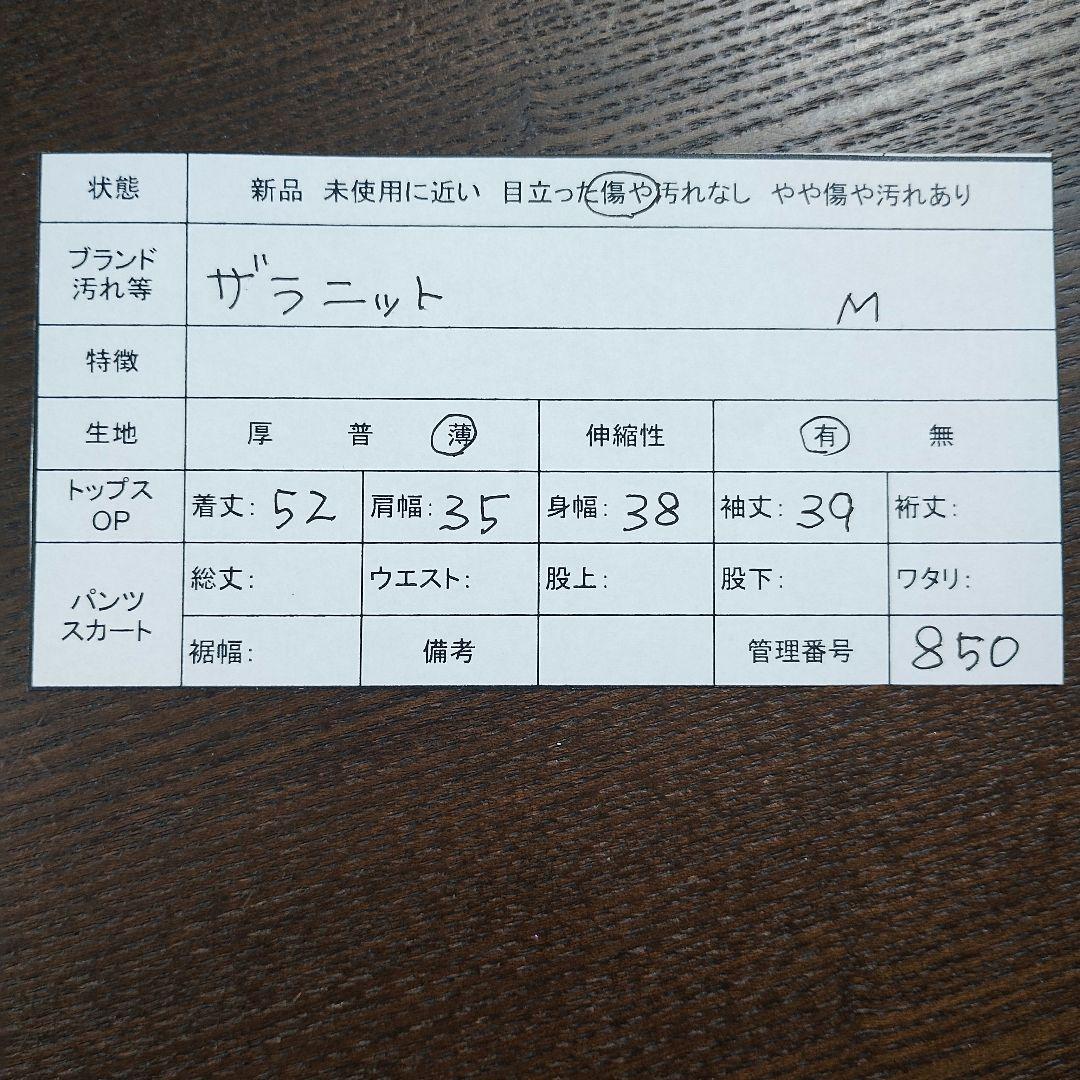 状態 新品 未使用に近い 目立った傷や汚れなし やや傷や汚れあり
ブランド
汚れ等 ザラニット M
特徴
生地 厚 普 薄 伸縮性 有 無
トップス
OP 着丈: 52 肩幅: 35 身幅: 38 袖丈: 39 裄丈:
パンツ
スカート 総丈: ウエスト: 股上: 股下: ワタリ:
裾幅: 備考 管理番号 850